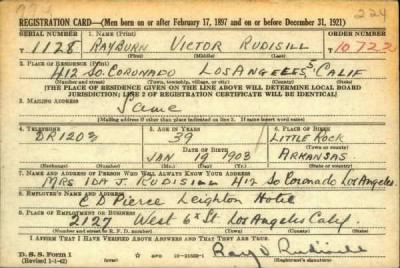 224
REGISTRATION CARD—(Men born on or after February 17, 1897 and on or before December 31, 1921)
SERIAL NUMBER 1. NAME (Print) ORDER NUMBER
T 1128 RAYBURN VICTOR RUDISILL T10722
(First) (Middle) (Last)
2. PLACE OF RESIDENCE (Print)
412 So. CORONADO LOS ANGELES CALIF
(Number and street) (Town, township, village, or city) (County) (State)
(THE PLACE OF RESIDENCE GIVEN ON THE LINE ABOVE WILL DETERMINE LOCAL BOARD
JURISDICTION; LINE 2 OF REGISTRATION CERTIFICATE WILL BE IDENTICAL)
3. MAILING ADDRESS
Same
(Mailing address if other than place indicated on line 2. If same insert word same)
4. TELEPHONE 5. AGE IN YEARS 6. PLACE OF BIRTH
DR1203 39 LITTLE ROCK
DATE OF BIRTH (Town or county)
JAN 19 1903 ARKANSAS
(Exchange) (Number) (Mo.) (Day) (Yr.) (State or country)
7. NAME AND ADDRESS OF PERSON WHO WILL ALWAYS KNOW YOUR ADDRESS
MRS IDA J. RUDISILL 412 So Coronado Los Angeles.
8. EMPLOYER'S NAME AND ADDRESS
C D Pierce Leighton Hotel
9. PLACE OF EMPLOYMENT OR BUSINESS
2127 West 6 St. Los Angeles Calif.
(Number and street or R. F. D. number) (Town) (County) (State)
I AFFIRM THAT I HAVE VERIFIED ABOVE ANSWERS AND THAT THEY ARE TRUE.
D. S. S. Form 1
(Revised 1-1-42) (over) Ray V Rudisill
(Registrant's signature)